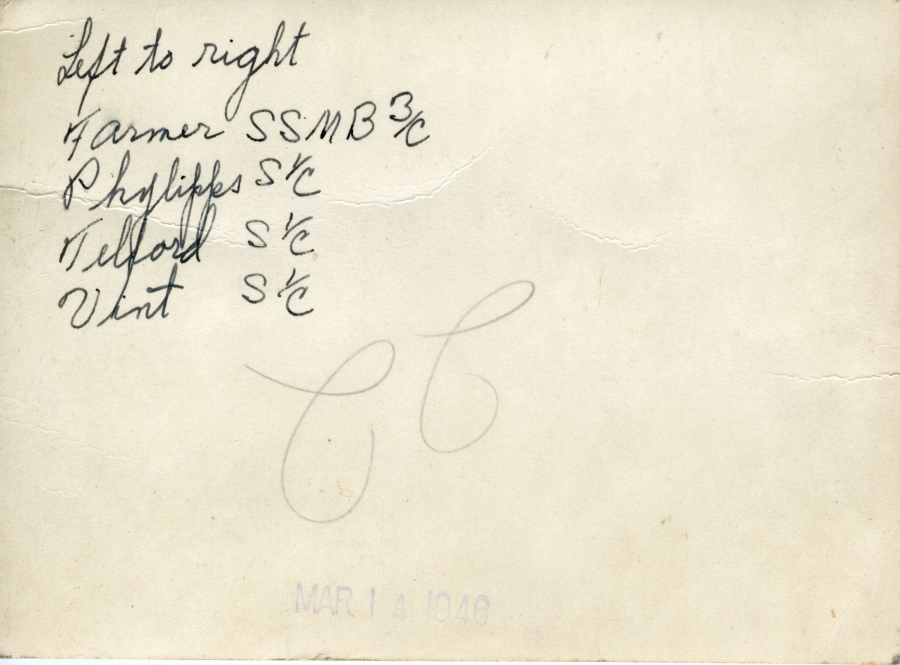 Left to right
Farmer SSMB 3/C
Phylipps S 1/C
Telford S 1/C
Vint S 1/C
MAR 14 1946